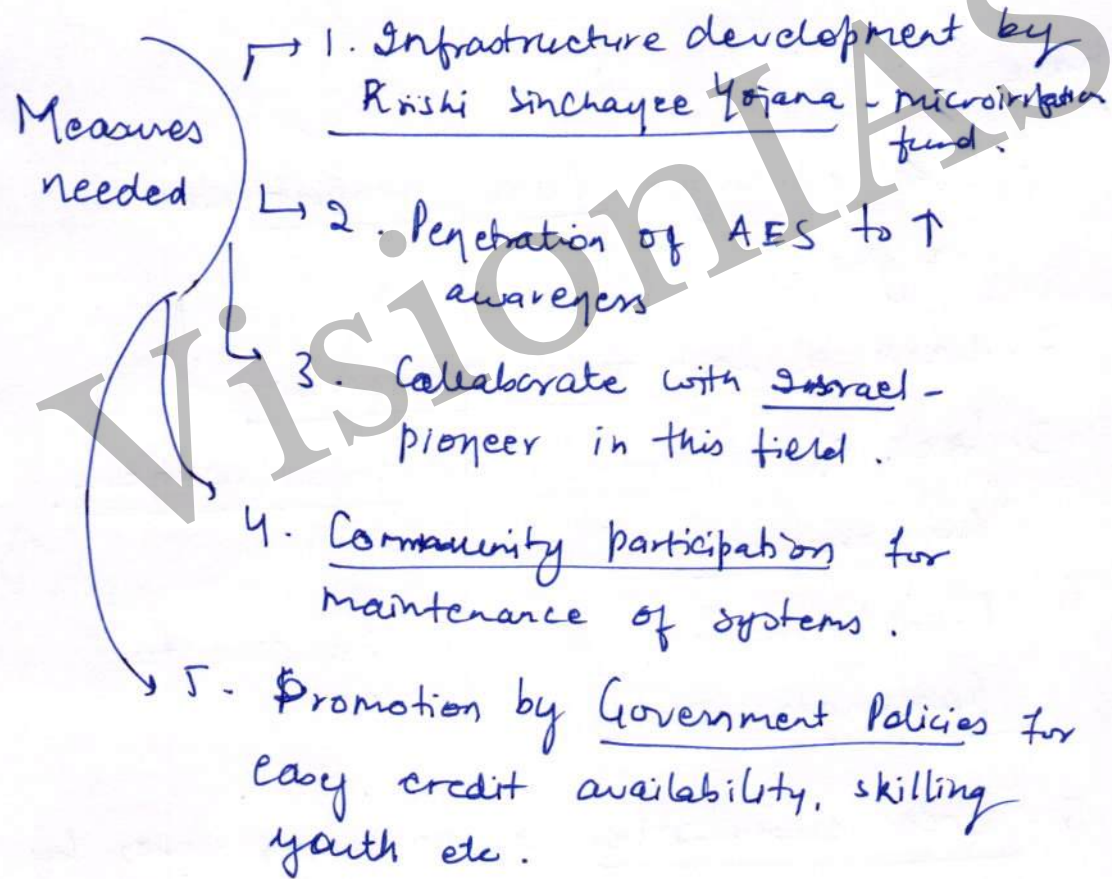 Measures
needed
1. Infrastructure development by
Krishi Sinchayee Yojana - microirrigation
fund.
2. Penetration of AES to ↑
awareness
3. Collaborate with Israel -
pioneer in this field.
4. Community participation for
maintenance of systems.
5. Promotion by Government Policies for
easy credit availability, skilling
youth etc.
VisionIAS